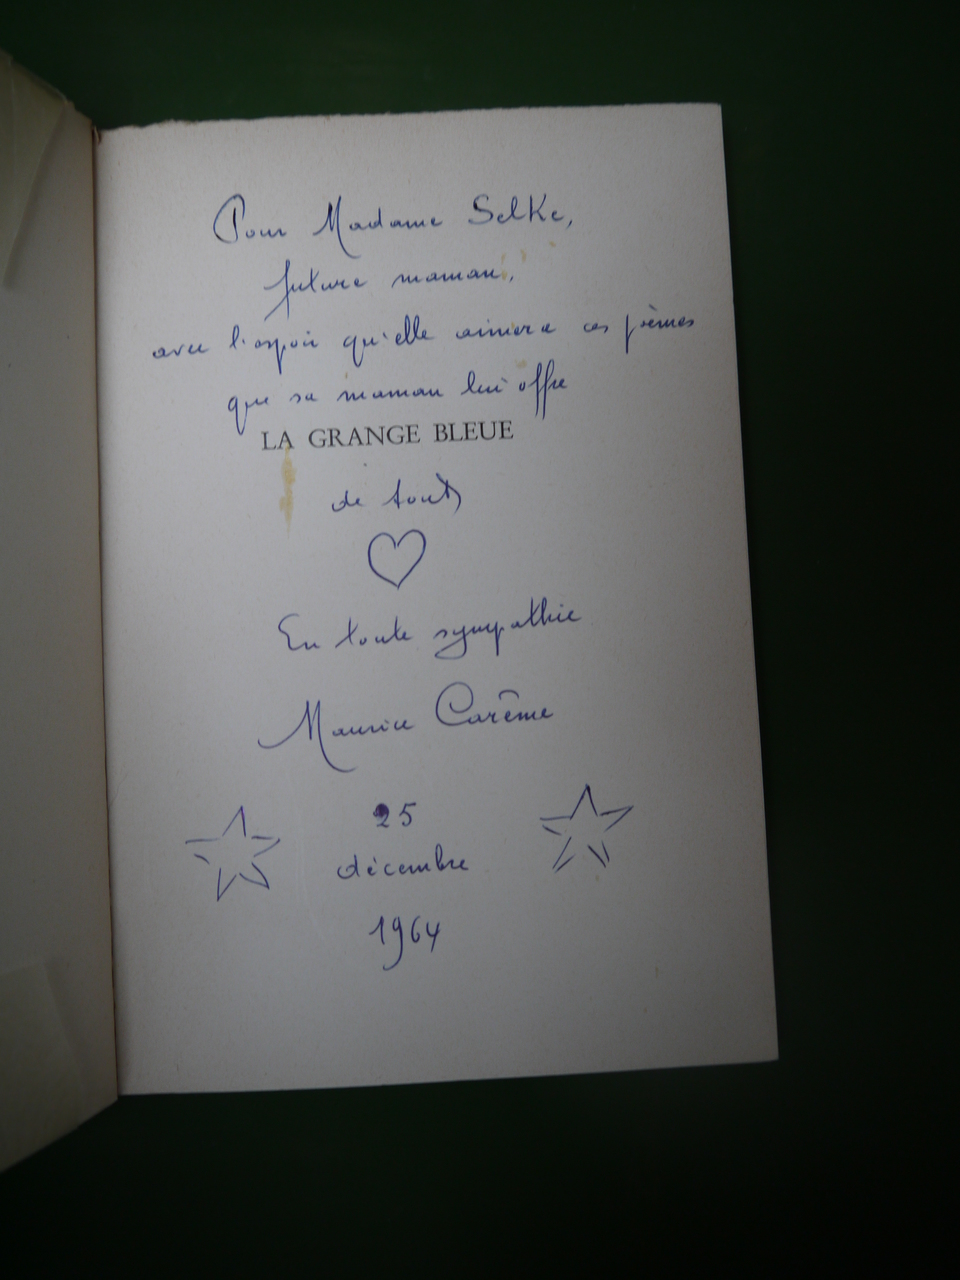 Pour Madame Selke,
future maman,
avec l'espoir qu'elle aimera ces poèmes
que sa maman lui offre
LA GRANGE BLEUE
de tout
En toute sympathie
Maurice Carême
25
décembre
1964